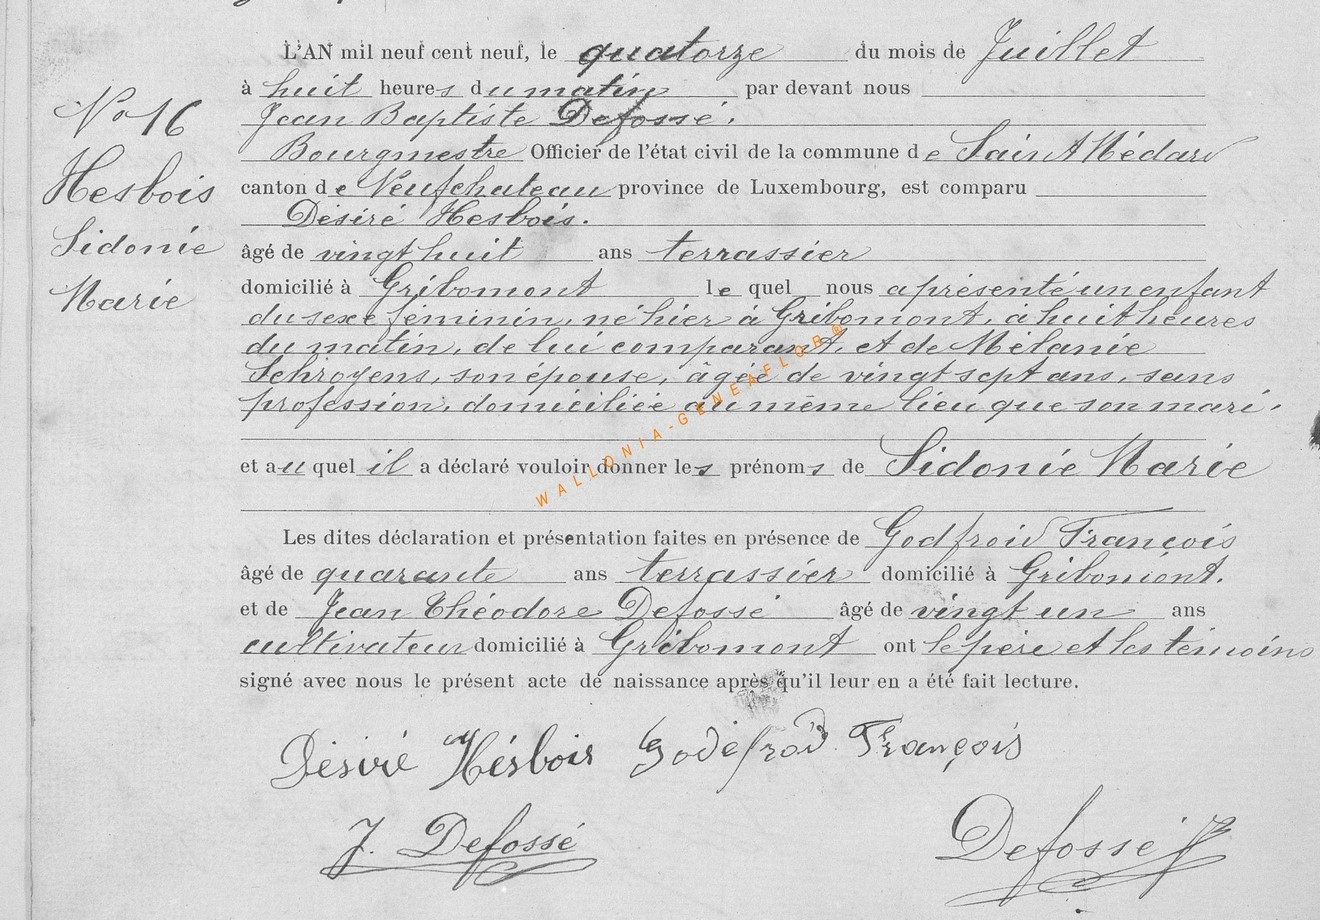 L'AN mil neuf cent neuf, le quatorze du mois de Juillet
à huit heures du matin par devant nous
Jean Baptiste Defossé.
Bourgmestre Officier de l'état civil de la commune de Saint Médard
canton de Neufchateau province de Luxembourg, est comparu
Désiré Hesbois.
âgé de vingt huit ans terrassier
domicilié à Gribomont le quel nous a présenté un enfant
du sexe féminin, né hier à Gribomont, à huit heures
du matin, de lui comparant, et de Mélanie
Schroyens, son épouse, âgée de vingt sept ans, sans
profession, domiciliée au même lieu que son mari.
et au quel il a déclaré vouloir donner les prénoms de Sidonie Marie
Les dites déclaration et présentation faites en présence de Godfroid François
âgé de quarante ans terrassier domicilié à Gribomont.
et de Jean Théodore Defossé âgé de vingt un ans
cultivateur domicilié à Gribomont ont le père et les témoins
signé avec nous le présent acte de naissance après qu'il leur en a été fait lecture.
Désiré Hésbois Godefroid François
J. Defossé
Defossé J
No 16
Hesbois
Sidonie
Marie
WALLONIA-GENEAFLOR®